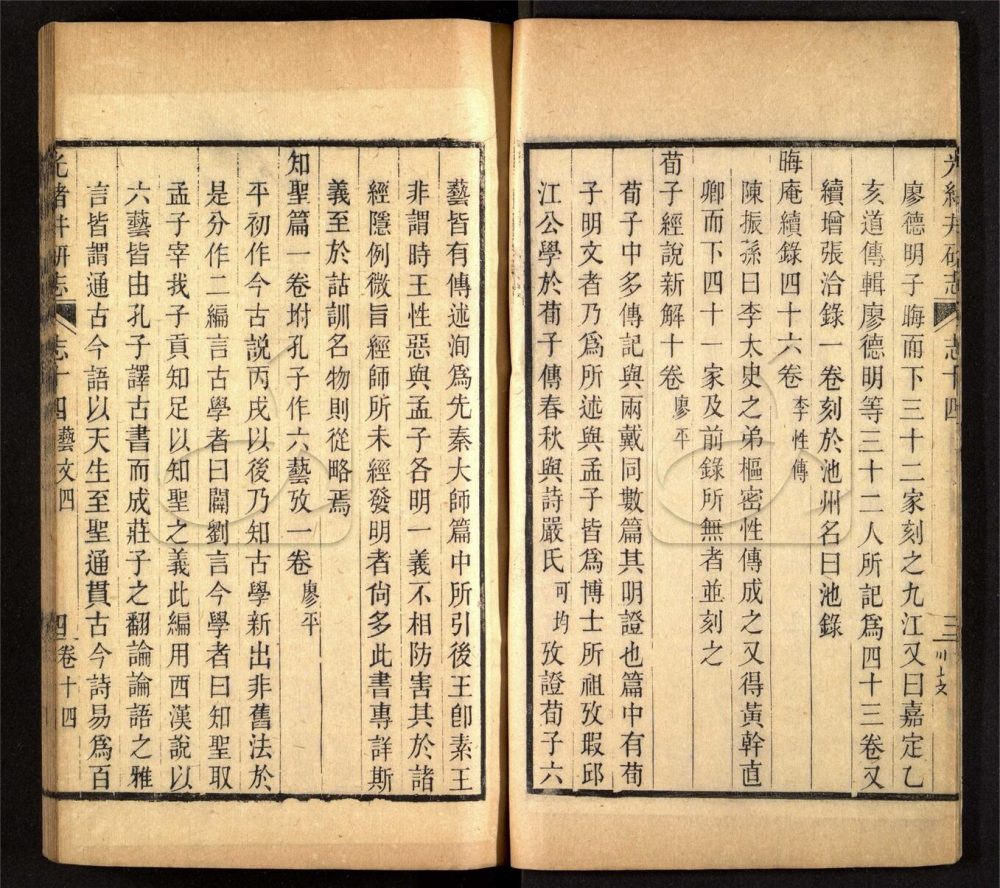 光緒井研志 志十四 三
廖德明子晦而下三十二家刻之九江又曰嘉定乙
亥道傳輯廖德明等三十二人所記爲四十三卷又
續增張洽錄一卷刻於池州名曰池錄
晦庵續錄四十六卷 李性傳
陳振孫曰李太史之弟樞密性傳成之又得黃幹直
卿而下四十一家及前錄所無者並刻之
荀子經說新解十卷 廖平
荀子中多傳記與兩戴同數篇其明證也篇中有荀
子明文者乃爲所述與孟子皆爲博士所祖攷瑕邱
江公學於荀子傳春秋與詩嚴氏可均攷證荀子六
藝皆有傳述洵爲先秦大師篇中所引後王卽素王
非謂時王性惡與孟子各明一義不相防害其於諸
經隱例微旨經師所未經發明者尙多此書專詳斯
義至於詁訓名物則從略焉
知聖篇一卷坿孔子作六藝攷一卷 廖平
平初作今古説丙戌以後乃知古學新出非舊法於
是分作二編言古學者曰闢劉言今學者曰知聖取
孟子宰我子貢知足以知聖之義此編用西漢說以
六藝皆由孔子譯古書而成莊子之翻論論語之雅
言皆謂通古今語以天生至聖通貫古今詩易爲百
光緒井研志 志十四 藝文四 四 卷十四